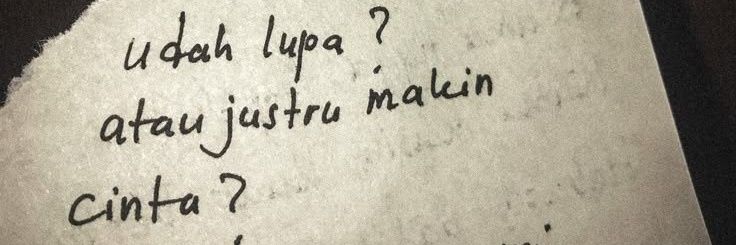 udah lupa?
atau justru makin
cinta?